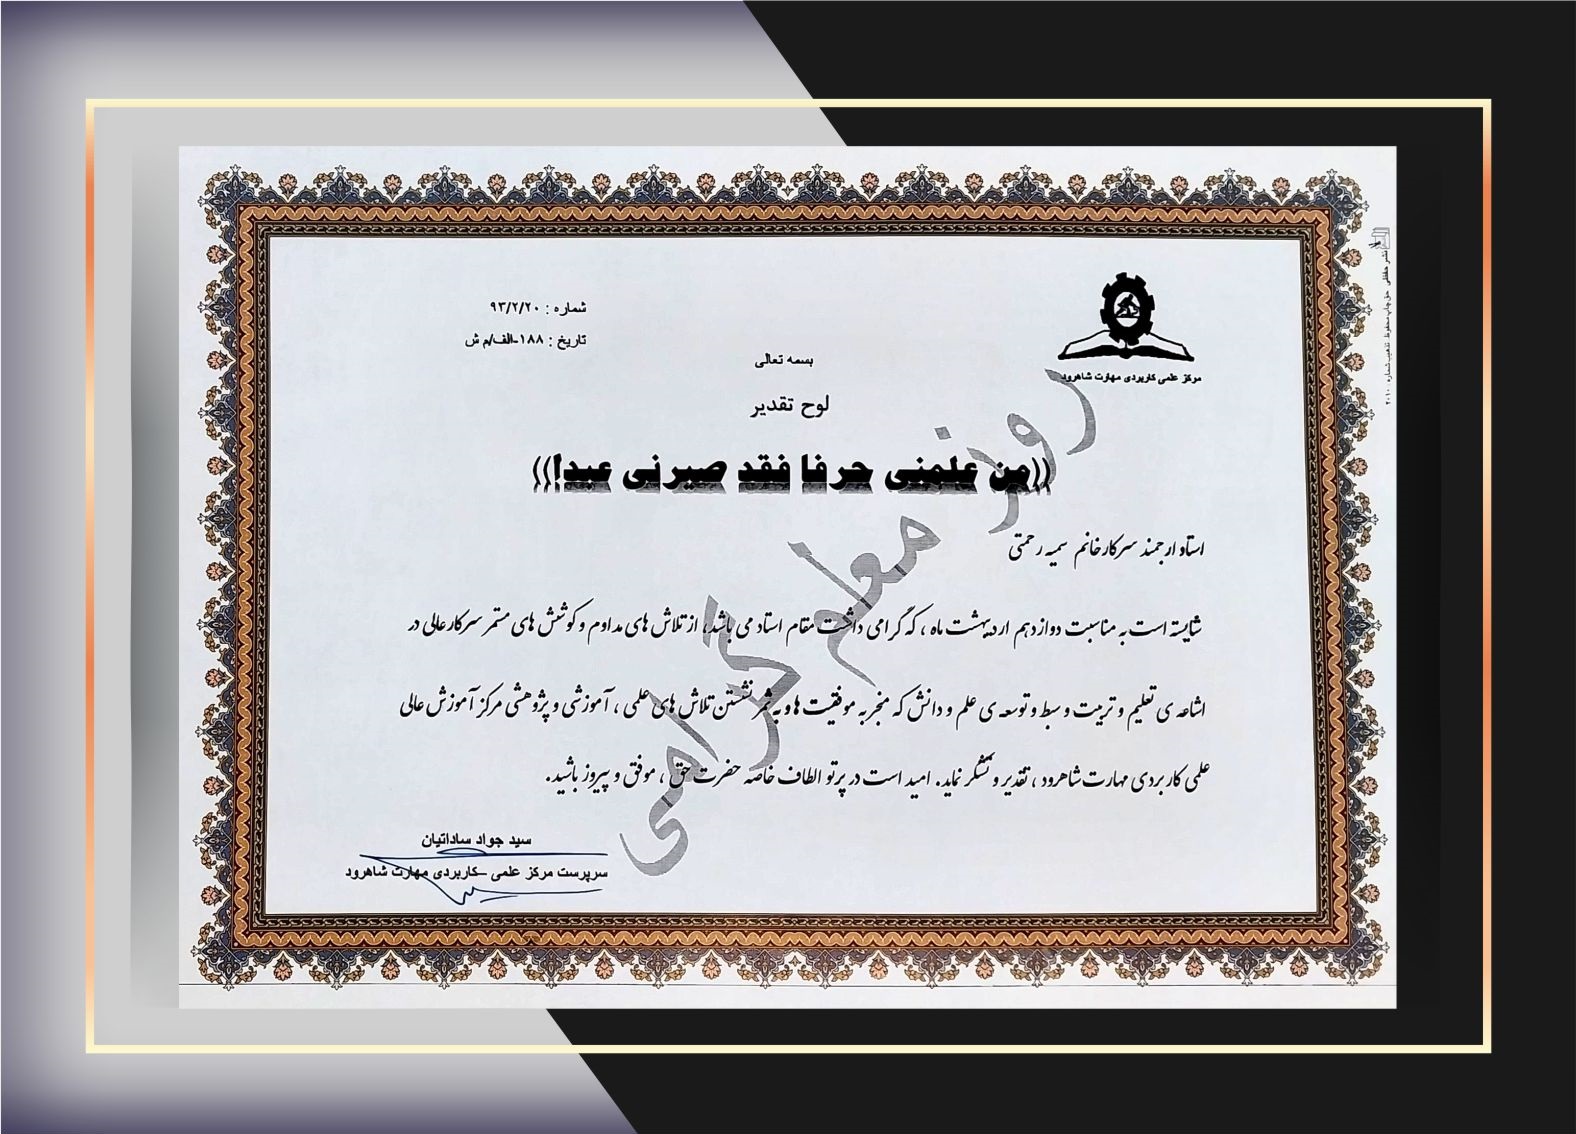 مرکز علمی کاربردی مهارت شاهرود
شماره : ۹۳/۲/۲۰
تاریخ : ۱۸۸-الف/م ش
بسمه تعالی
لوح تقدیر
((من علمنی حرفا فقد صیرنی عبدا!))
استاد ارجمند سرکار خانم سمیه رحمتی
شایسته است به مناسبت دوازدهم اردیبهشت ماه ، که گرامی داشت مقام استاد می باشد، از تلاش های مداوم و کوشش های مستمر سرکار عالی در
اشاعه ی تعلیم و تربیت و سبط و توسعه ی علم و دانش که منجر به موفقیت ها و به ثمر نشستن تلاش های علمی ، آموزشی و پژوهشی مرکز آموزش عالی
علمی کاربردی مهارت شاهرود ، تقدیر و تشکر نماید. امید است در پرتو الطاف خاصه حضرت حق ، موفق و پیروز باشید.
روز معلم گرامی
سید جواد ساداتیان
سرپرست مرکز علمی –کاربردی مهارت شاهرود
نشر حققی حق چاپ محفوظ تذهیب شماره ۲۰۱۰